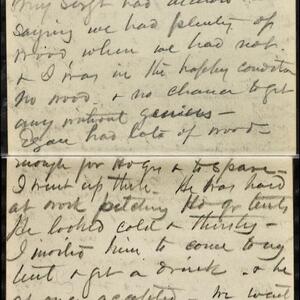 my Sergt had
saying we had plenty of
wood when we had not.
& I was in the happy condition
no wood - & no chance to get
any without
Egan had lots of wood -
enough for Hd Qrs & to spare -
I went up there. He was hard
at work pitching Hd Qr tents
He looked cold & thirsty -
I invited him to come to my
tent & get a drink - & he
at once accepted - We went